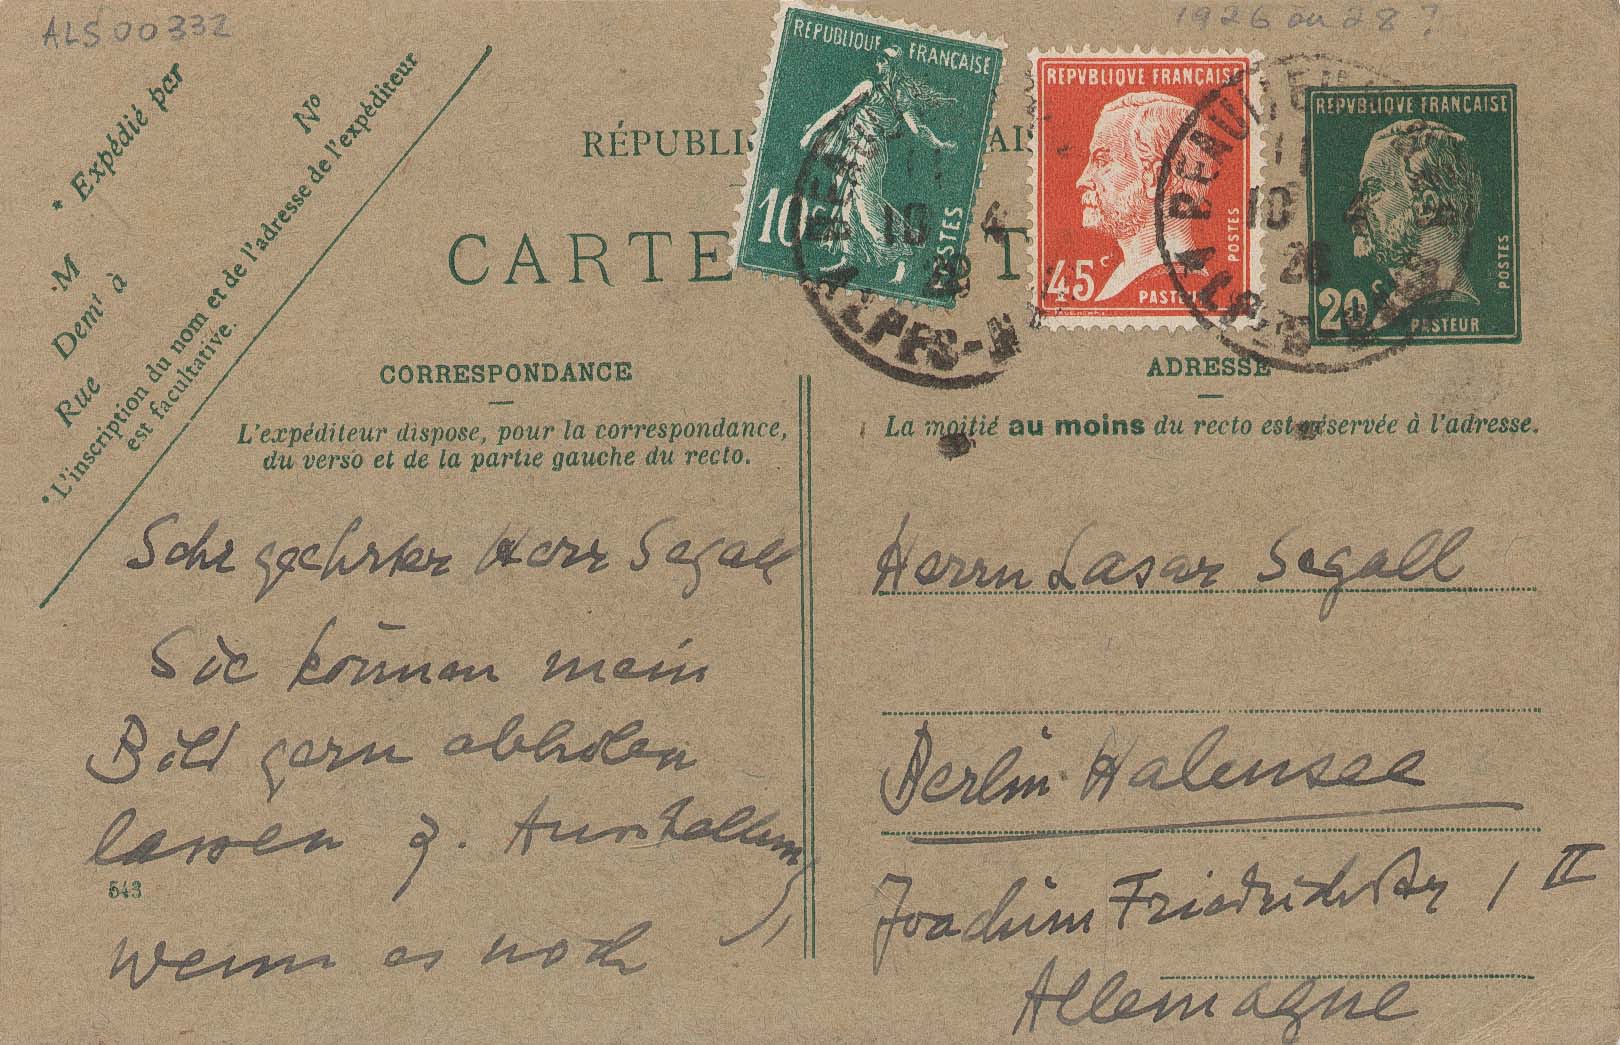 ALS 00332
1926 ou 28?
* Expédié par
M
Nº
Demt à
Rue
* L'inscription du nom et de l'adresse de l'expéditeur
est facultative.
RÉPUBLIQUE FRANÇAISE
10c
POSTES
REPVBLIQVE FRANÇAISE
45c
POSTES
PASTEUR
REPVBLIQVE FRANÇAISE
20c
POSTES
PASTEUR
BEAULIEU
11
10 4
26
ALPES-M
BEAULIEU
11
10 4
26
RÉPUBLI
AI
CARTE
T
CORRESPONDANCE
L'expéditeur dispose, pour la correspondance,
du verso et de la partie gauche du recto.
Sehr geehrter Herr Segall
Sie können mein
Bild gern abholen
lassen z. Ausstellung,
543
wenn es noch
ADRESSE
La moitié au moins du recto est réservée à l'adresse.
Herrn Lasar Segall
Berlin Halensee
Joachim Friedrichstr 1 II
Allemagne